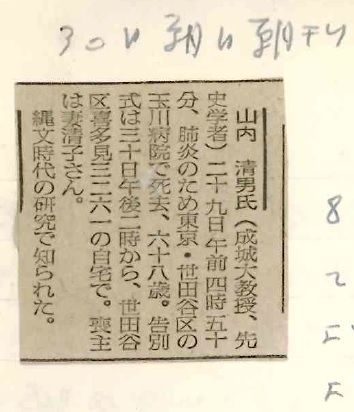 30日 朝日 朝刊
山内　清男氏（成城大教授、先
史学者）二十九日午前四時五十
分、肺炎のため東京・世田谷区の
玉川病院で死去、六十八歳。告別
式は三十日午後二時から、世田谷
区喜多見三二六一の自宅で。喪主
は妻清子さん。
縄文時代の研究で知られた。
8